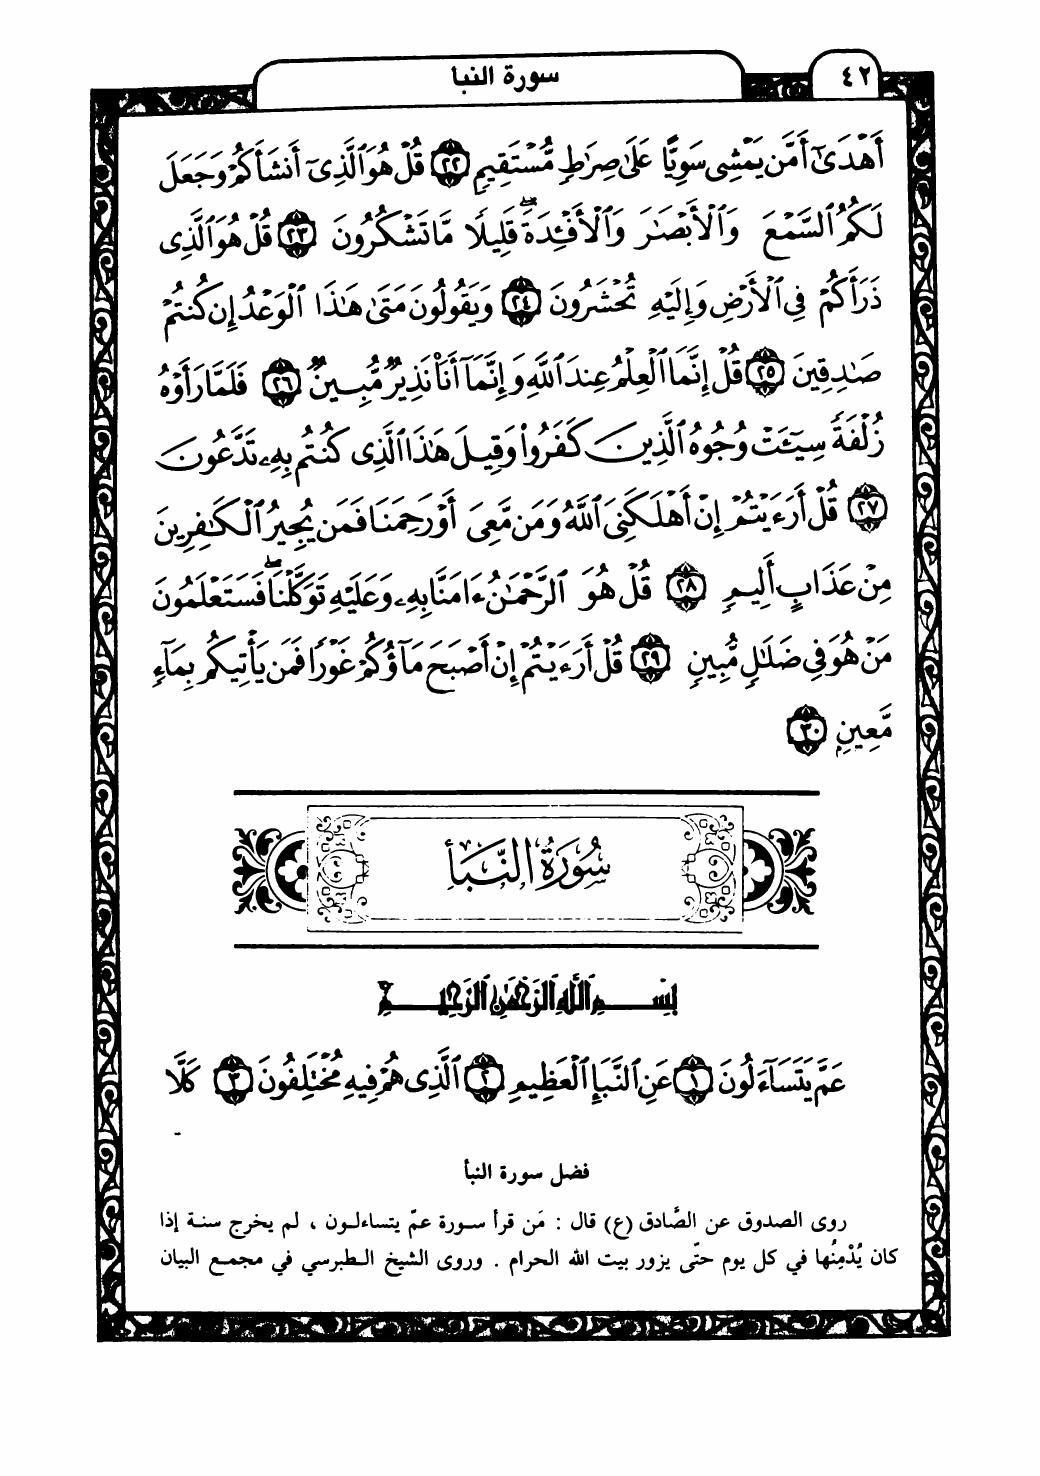 ٤٢
سورة النبأ
أَهْدَىٰٓ أَمَّن يَمْشِى سَوِيًّا عَلَىٰ صِرَٰطٍ مُّسْتَقِيمٍ ٢٢ قُلْ هُوَ ٱلَّذِىٓ أَنشَأَكُمْ وَجَعَلَ
لَكُمُ ٱلسَّمْعَ وَٱلْأَبْصَٰرَ وَٱلْأَفْـِٔدَةَ ۖ قَلِيلًا مَّا تَشْكُرُونَ ٢٣ قُلْ هُوَ ٱلَّذِى
ذَرَأَكُمْ فِى ٱلْأَرْضِ وَإِلَيْهِ تُحْشَرُونَ ٢٤ وَيَقُولُونَ مَتَىٰ هَٰذَا ٱلْوَعْدُ إِن كُنتُمْ
صَٰدِقِينَ ٢٥ قُلْ إِنَّمَا ٱلْعِلْمُ عِندَ ٱللَّهِ وَإِنَّمَآ أَنَا۠ نَذِيرٌ مُّبِينٌ ٢٦ فَلَمَّا رَأَوْهُ
زُلْفَةً سِيٓـَٔتْ وُجُوهُ ٱلَّذِينَ كَفَرُوا۟ وَقِيلَ هَٰذَا ٱلَّذِى كُنتُم بِهِۦ تَدَّعُونَ
٢٧ قُلْ أَرَءَيْتُمْ إِنْ أَهْلَكَنِىَ ٱللَّهُ وَمَن مَّعِىَ أَوْ رَحِمَنَا فَمَن يُجِيرُ ٱلْكَٰفِرِينَ
مِنْ عَذَابٍ أَلِيمٍ ٢٨ قُلْ هُوَ ٱلرَّحْمَٰنُ ءَامَنَّا بِهِۦ وَعَلَيْهِ تَوَكَّلْنَا ۖ فَسَتَعْلَمُونَ
مَنْ هُوَ فِى ضَلَٰلٍ مُّبِينٍ ٢٩ قُلْ أَرَءَيْتُمْ إِنْ أَصْبَحَ مَآؤُكُمْ غَوْرًا فَمَن يَأْتِيكُم بِمَآءٍ
مَّعِينٍ ٣٠
سُورَةُ النَّبَأ
بِسْمِ ٱللَّهِ ٱلرَّحْمَٰنِ ٱلرَّحِيمِ
عَمَّ يَتَسَآءَلُونَ ١ عَنِ ٱلنَّبَإِ ٱلْعَظِيمِ ٢ ٱلَّذِى هُمْ فِيهِ مُخْتَلِفُونَ ٣ كَلَّا
فضل سورة النبأ
روى الصدوق عن الصَّادق (ع) قال : مَن قرأ سورة عمّ يتساءلون ، لم يخرج سنة إذا
كان يُدْمِنُها في كل يوم حتّى يزور بيت الله الحرام . وروى الشيخ الطبرسي في مجمع البيان